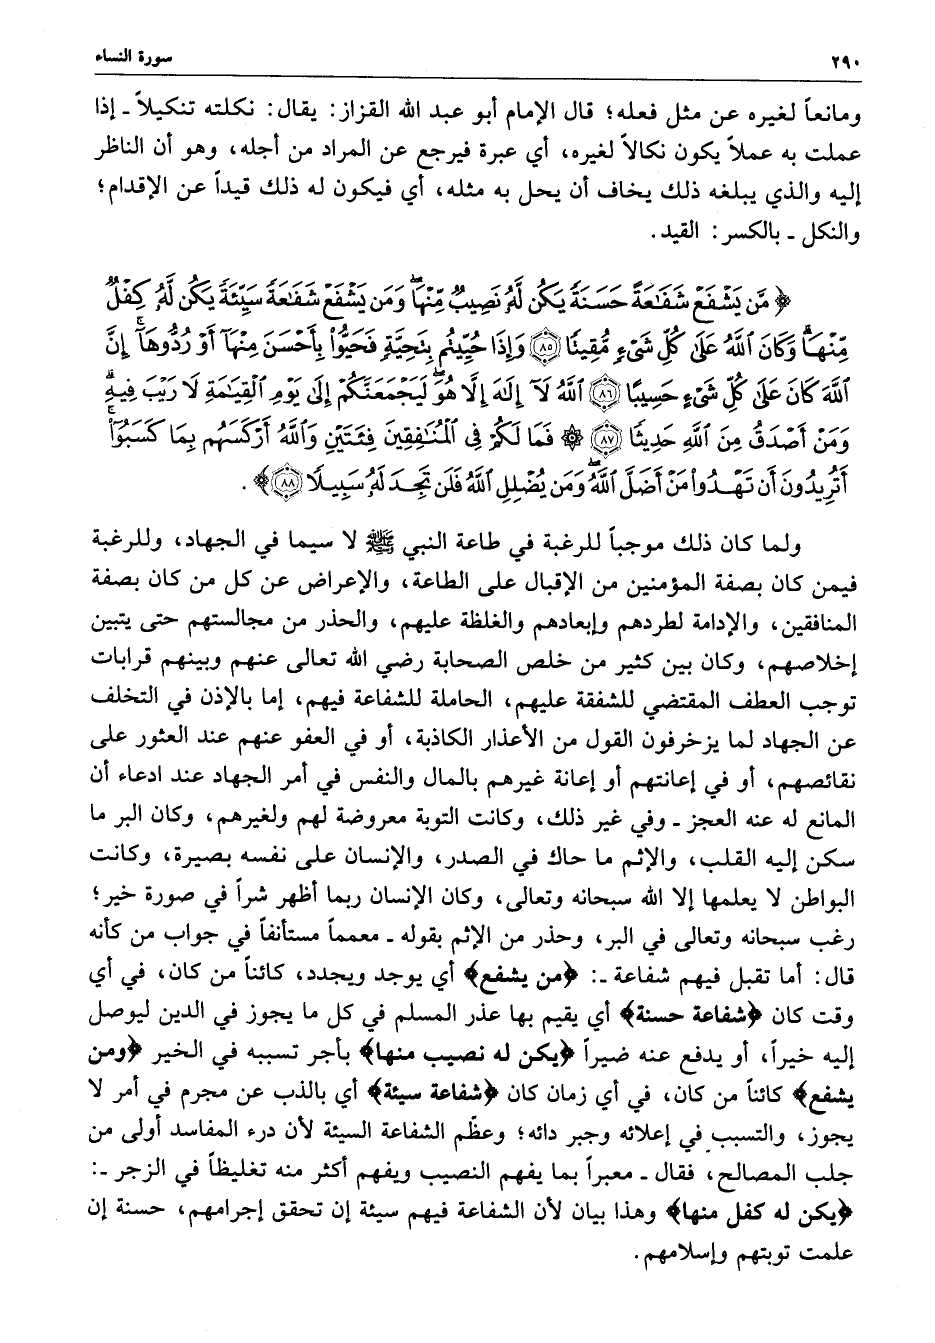 ٢٩٠ سورة النساء
ومانعاً لغيره عن مثل فعله؛ قال الإمام أبو عبد الله القزاز: يقال: نكلته تنكيلاً ـ إذا
عملت به عملاً يكون نكالاً لغيره، أي عبرة فيرجع عن المراد من أجله، وهو أن الناظر
إليه والذي يبلغه ذلك يخاف أن يحل به مثله، أي فيكون له ذلك قيداً عن الإقدام؛
والنكل ـ بالكسر: القيد.
﴿مَّن يَشْفَعْ شَفَٰعَةً حَسَنَةً يَكُن لَّهُۥ نَصِيبٌ مِّنْهَا ۖ وَمَن يَشْفَعْ شَفَٰعَةً سَيِّئَةً يَكُن لَّهُۥ كِفْلٌ
مِّنْهَا ۗ وَكَانَ ٱللَّهُ عَلَىٰ كُلِّ شَىْءٍ مُّقِيتًا ﴿٨٥﴾ وَإِذَا حُيِّيتُم بِتَحِيَّةٍ فَحَيُّوا۟ بِأَحْسَنَ مِنْهَآ أَوْ رُدُّوهَآ ۗ إِنَّ
ٱللَّهَ كَانَ عَلَىٰ كُلِّ شَىْءٍ حَسِيبًا ﴿٨٦﴾ ٱللَّهُ لَآ إِلَٰهَ إِلَّا هُوَ ۚ لَيَجْمَعَنَّكُمْ إِلَىٰ يَوْمِ ٱلْقِيَٰمَةِ لَا رَيْبَ فِيهِ ۗ
وَمَنْ أَصْدَقُ مِنَ ٱللَّهِ حَدِيثًا ﴿٨٧﴾ ۞ فَمَا لَكُمْ فِى ٱلْمُنَٰفِقِينَ فِئَتَيْنِ وَٱللَّهُ أَرْكَسَهُم بِمَا كَسَبُوٓا۟ ۚ
أَتُرِيدُونَ أَن تَهْدُوا۟ مَنْ أَضَلَّ ٱللَّهُ ۖ وَمَن يُضْلِلِ ٱللَّهُ فَلَن تَجِدَ لَهُۥ سَبِيلًا ﴿٨٨﴾﴾.
ولما كان ذلك موجباً للرغبة في طاعة النبي ﷺ لا سيما في الجهاد، وللرغبة
فيمن كان بصفة المؤمنين من الإقبال على الطاعة، والإعراض عن كل من كان بصفة
المنافقين، والإدامة لطردهم وإبعادهم والغلظة عليهم، والحذر من مجالستهم حتى يتبين
إخلاصهم، وكان بين كثير من خلص الصحابة رضي الله تعالى عنهم وبينهم قرابات
توجب العطف المقتضي للشفقة عليهم، الحاملة للشفاعة فيهم، إما بالإذن في التخلف
عن الجهاد لما يزخرفون القول من الأعذار الكاذبة، أو في العفو عنهم عند العثور على
نقائصهم، أو في إعانتهم أو إعانة غيرهم بالمال والنفس في أمر الجهاد عند ادعاء أن
المانع له عنه العجز ـ وفي غير ذلك، وكانت التوبة معروضة لهم ولغيرهم، وكان البر ما
سكن إليه القلب، والإثم ما حاك في الصدر، والإنسان على نفسه بصيرة، وكانت
البواطن لا يعلمها إلا الله سبحانه وتعالى، وكان الإنسان ربما أظهر شراً في صورة خير؛
رغب سبحانه وتعالى في البر، وحذر من الإثم بقوله ـ معمماً مستأنفاً في جواب من كأنه
قال: أما تقبل فيهم شفاعة ـ: ﴿من يشفع﴾ أي يوجد ويجدد، كائناً من كان، في أي
وقت كان ﴿شفاعة حسنة﴾ أي يقيم بها عذر المسلم في كل ما يجوز في الدين ليوصل
إليه خيراً، أو يدفع عنه ضيراً ﴿يكن له نصيب منها﴾ بأجر تسببه في الخير ﴿ومن
يشفع﴾ كائناً من كان، في أي زمان كان ﴿شفاعة سيئة﴾ أي بالذب عن مجرم في أمر لا
يجوز، والتسبب في إعلائه وجبر دائه؛ وعظّم الشفاعة السيئة لأن درء المفاسد أولى من
جلب المصالح، فقال ـ معبراً بما يفهم النصيب ويفهم أكثر منه تغليظاً في الزجر ـ:
﴿يكن له كفل منها﴾ وهذا بيان لأن الشفاعة فيهم سيئة إن تحقق إجرامهم، حسنة إن
علمت توبتهم وإسلامهم.